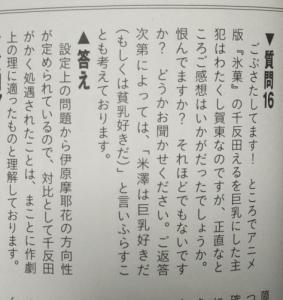 ▼質問16
ごぶさたしてます! ところでアニメ
版『氷菓』の千反田えるを巨乳にした主
犯はわたくし賀東なのですが、正直なと
ころご感想はいかがだったでしょうか。
恨んでますか? それほどでもないです
か? どうかお聞かせください。ご返答
次第によっては、「米澤は巨乳好きだ
(もしくは貧乳好きだ)」と言いふらすこ
とも考えております。
▲答え
設定上の問題から伊原摩耶花の方向性
が定められているので、対比として千反田
がかく処遇されたことは、まことに作劇
上の理に適ったものと理解しております。